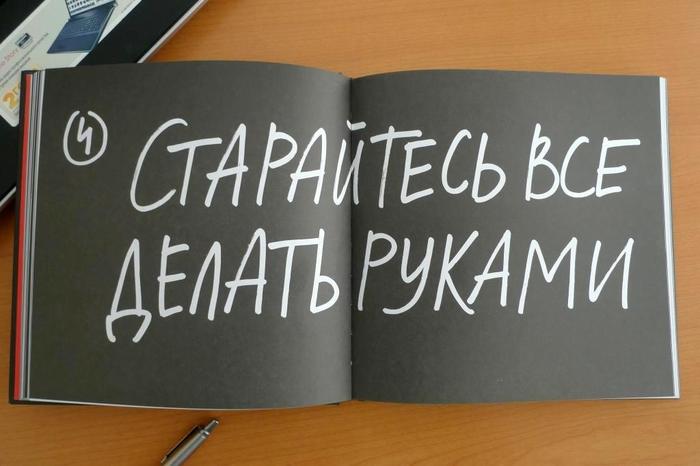 4
СТАРАЙТЕСЬ ВСЕ
ДЕЛАТЬ РУКАМИ